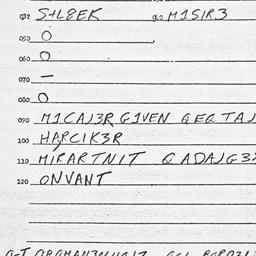 012 S+L8EK 020 M1SIR3
050 O
060 O
070 –
080 O
090 M1CAJ3R G1VEN QEQ TAJ
100 HAPCIK3R
110 MIRARTNIT QADAJG3
120 ONVANT